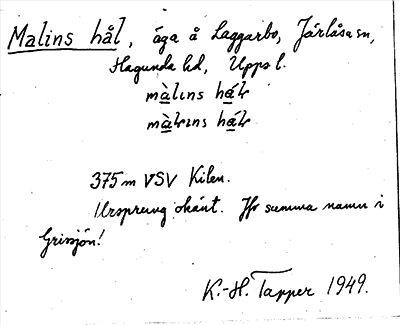 Malins hål, äga å Laggarbo, Järlåsa sn,
Hagunda hd, Upps l.
màlɩns hál
màlɩns hál
375 m VSV Kilen.
Ursprung okänt. Jfr samma namn i
Grissjön!
K.-H. Tapper 1949.